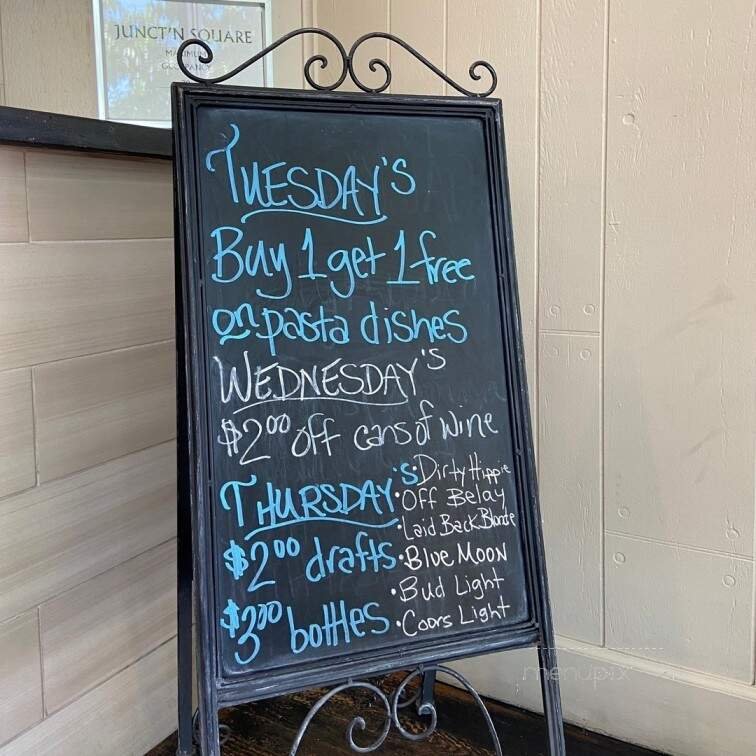 JUNCT'N SQUARE
MAXIMUM
OCCUPANCY
TUESDAY'S
Buy 1 get 1 free
on pasta dishes
WEDNESDAY'S
$2.00 off cans of wine
THURSDAY'S
$2.00 drafts
$3.00 bottles
• Dirty Hippie
• OFF Belay
• Laid Back Blonde
• Blue Moon
• Bud Light
• Coors Light
menupix